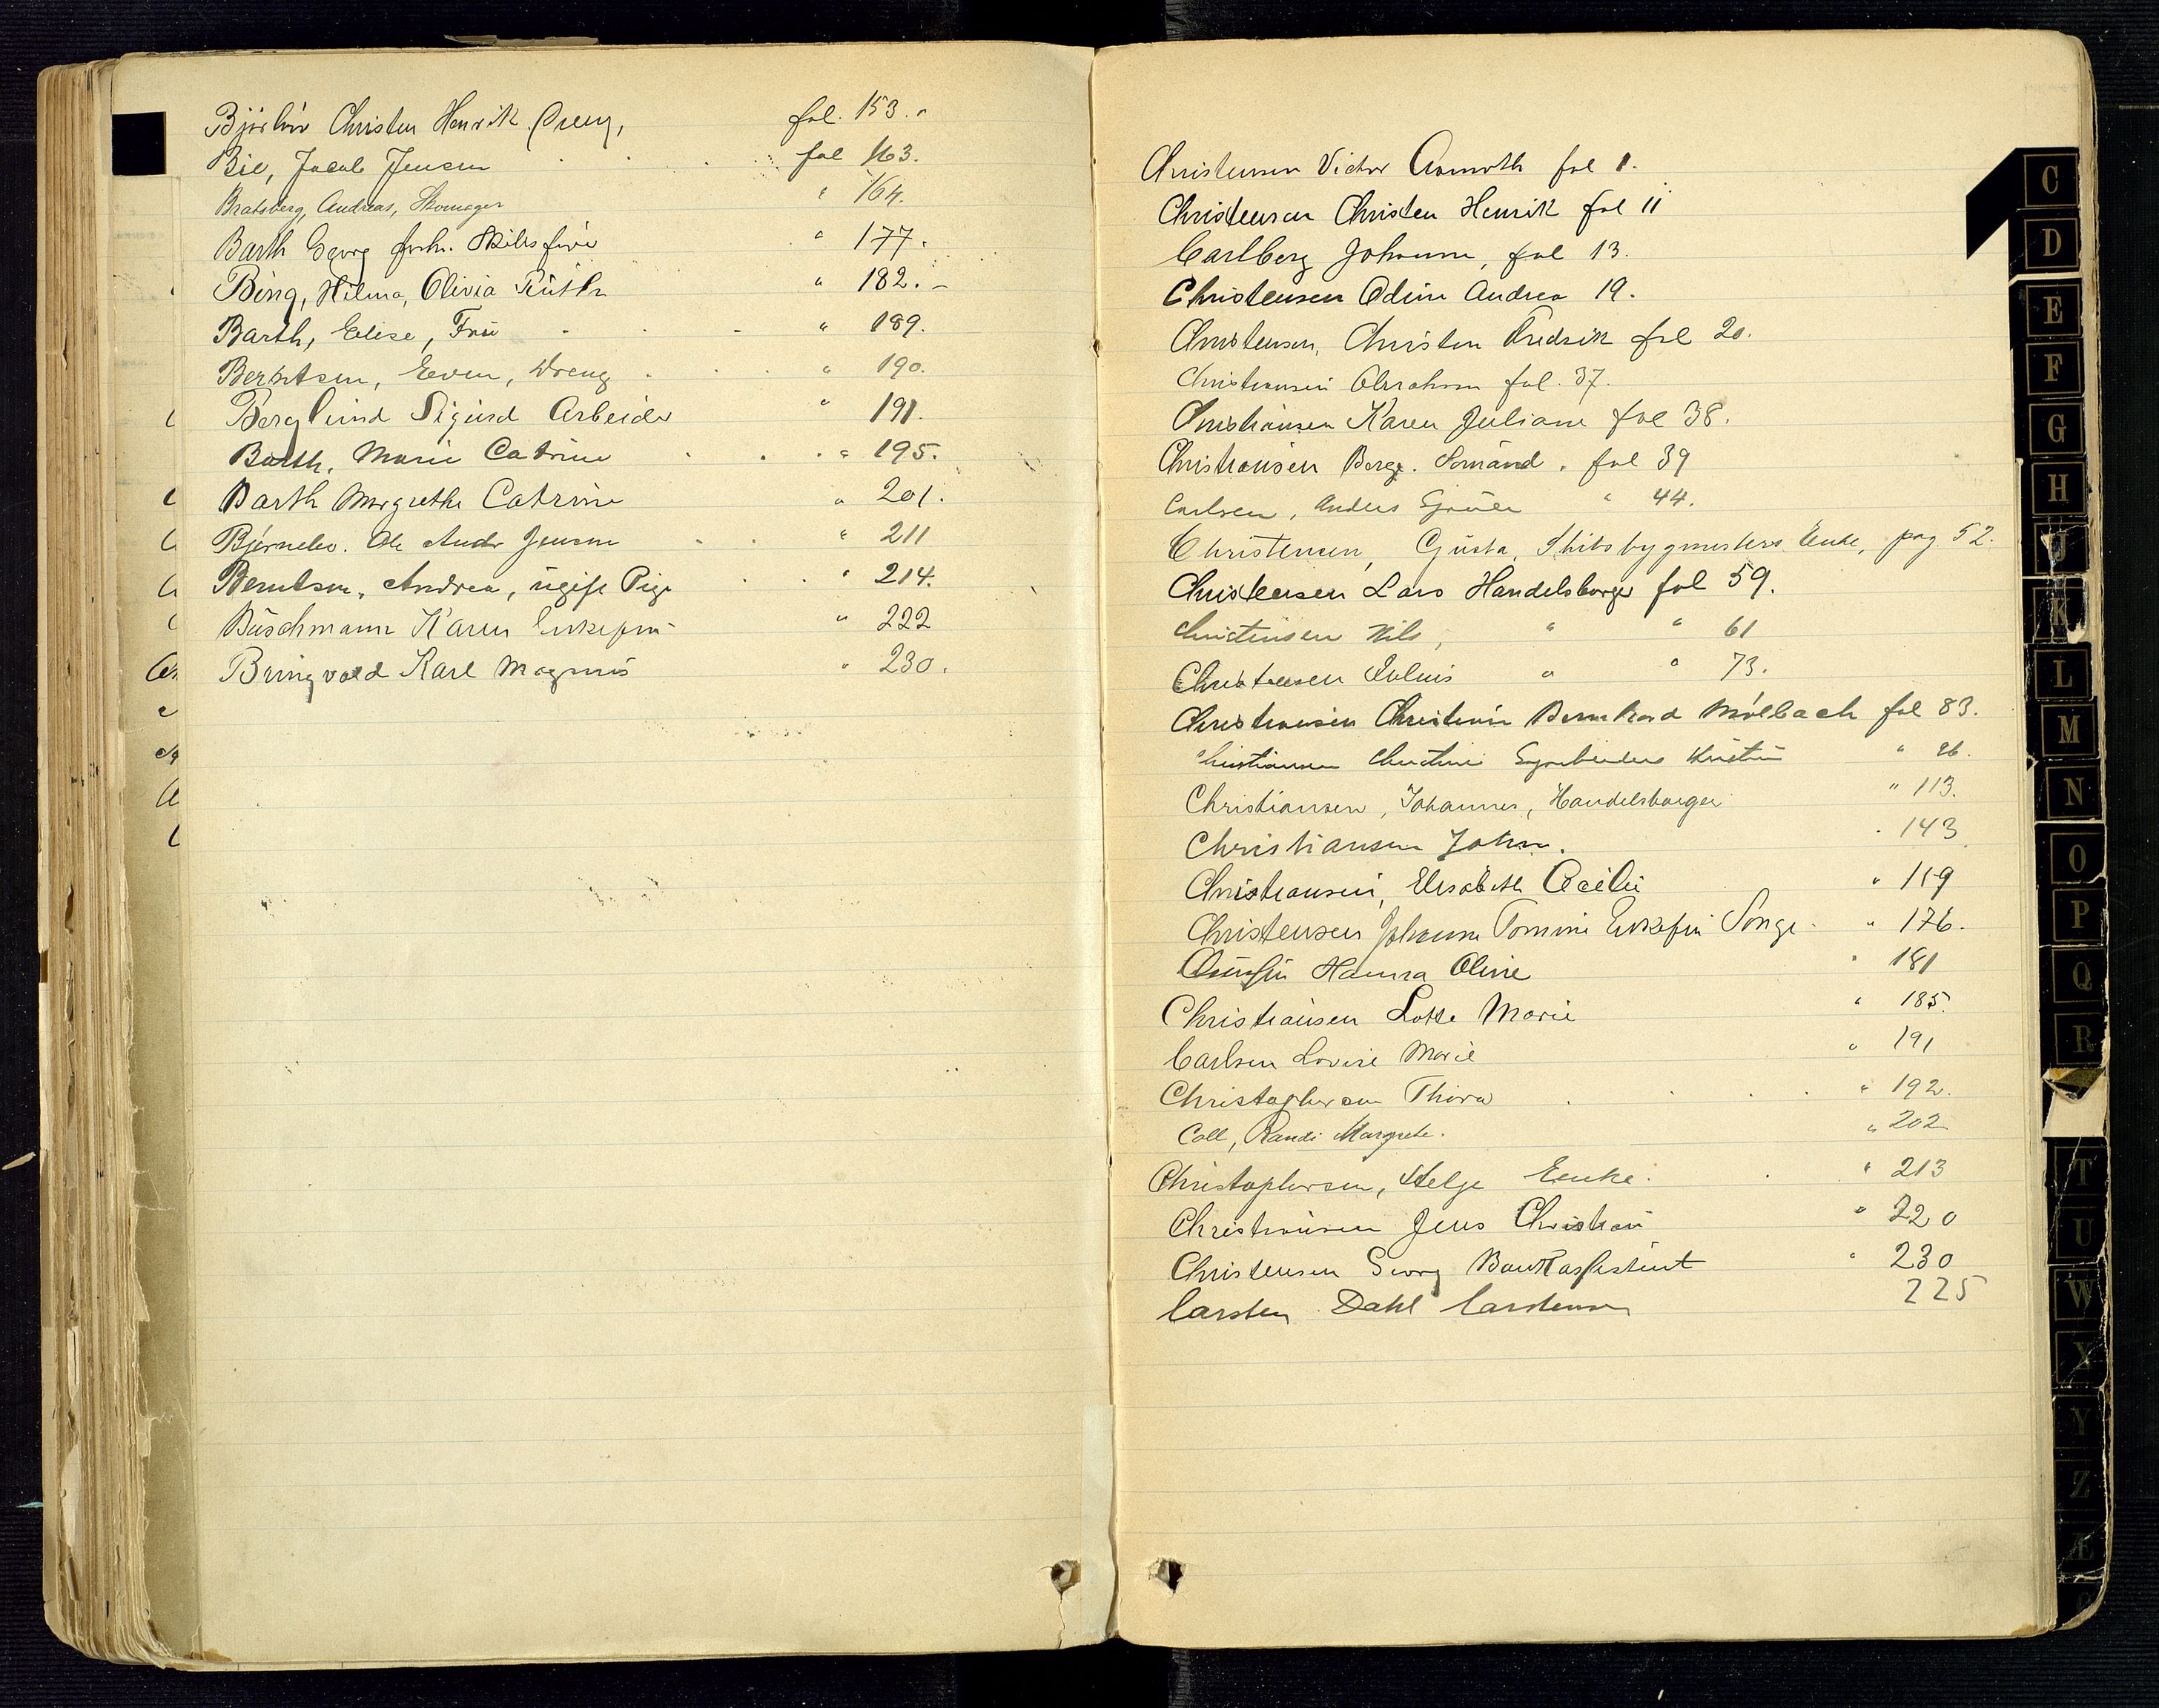 Christen Henrik
fol. 153.
Bie, Jacob Jensen fol 163.
Bratsberg, Andreas, Skomager " 164.
Barth Georg " 177.
Bing, Hilma, Olivia Ruth " 182. –
Barth, Elise, Frü " 189.
Berntsen, Even, Dreng " 190.
Berglund Sigurd Arbeider " 191.
Barth, Marie Catrine " 195.
Barth Margrethe Catrine " 201.
Bjørnebo. Ole Andr Jensen " 211
Berntsen, Andrea, ugift Pige " 214.
Büschmann Karen Enkefrü " 222
Bringvold Karl Magnus " 230.
Christensen Victor fol 1.
Christensen Christen Henrik fol 11
Carlberg Johanne, fol 13.
Christensen Odine Andrea 19.
Christensen, Christen Fredrik fol 20.
Christiansen Abraham fol. 37.
Christiansen Karen Juliane fol 38.
Christiansen Berge. Sømand. fol 39
Carlsen, Anders " 44.
Christensen, Gusta, Skibsbygmesters Enke, pag. 52.
Christensen Lars Handelsborger fol 59.
Christensen Nils, " " 61
Christensen Julius " " 73.
Christiansen Christian Bernhard Mölbach fol 83.
Christiansen " 86.
Christiansen, Johannes, Handelsborger " 113.
Christiansen John. 143
Christiansen, Elisabeth Cecilie " 119
Christensen Johanne Tomine Enkefrü Songe " 176.
Hanna Oline " 181
Christiansen Lotte Marie " 185.
Carlsen Lovise Marie " 191
Christophersen Thora " 192.
Coll, Randi Margrete. " 202
Christophersen, Helge Enke. " 213
Christiansen Jens Christian " 220
Christensen Georg Bankassistent " 230
Carsten Dahl Carstensen 225
C
D
E
F
G
H
J
K
L
M
N
O
P
Q
R
T
U
W
X
Y
Z
Æ